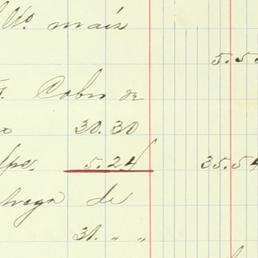 No. mais
5.5
Cobro de
o 30.30
lpe. 5.24 35.54
trega de
31. " "